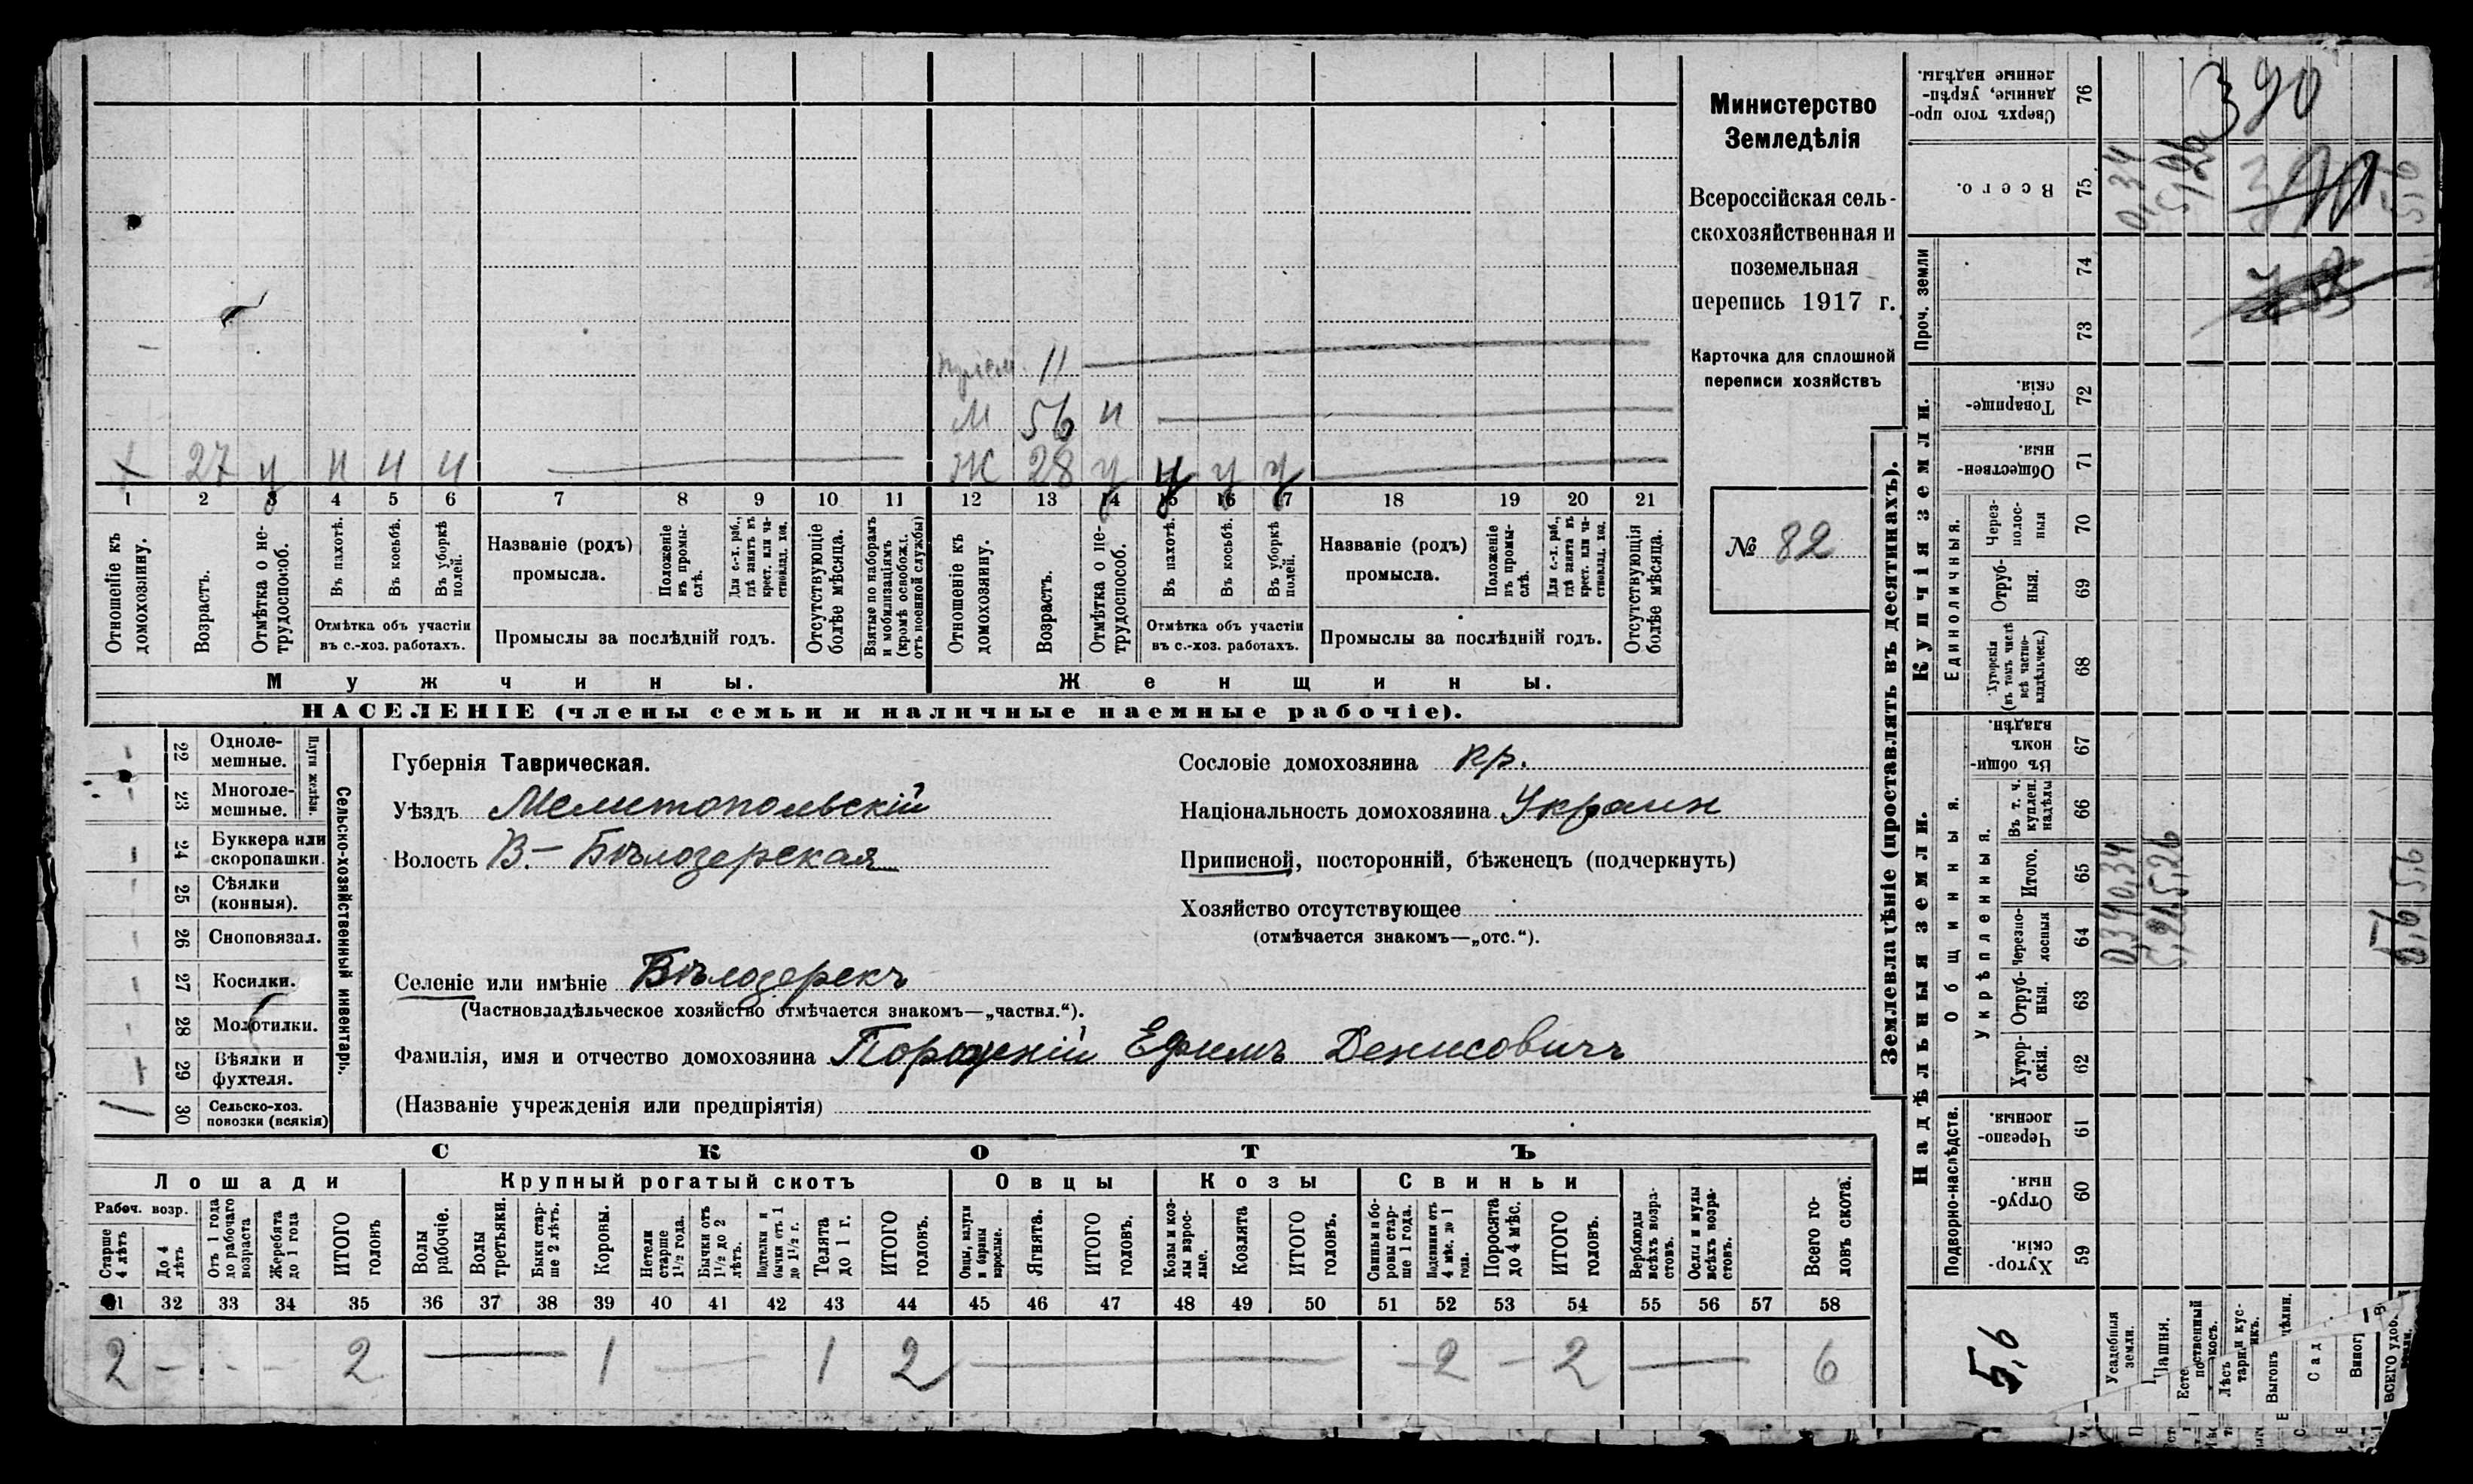 Министерство
Земледѣлія
Всероссійская сель-
скохозяйственная и
поземельная
перепись 1917 г.
Карточка для сплошной
переписи хозяйствъ
№ 82
11
М 56 н
1 27 у н н н
Ж 28 у у у у
1 2 3 4 5 6 7 8 9 10 11 12 13 14 15 16 17 18 19 20 21
Отношеніе къ домохозяину.
Возрастъ.
Отмѣтка о не-трудоспособ.
Въ пахотѣ.
Въ косьбѣ.
Въ уборкѣ полей.
Отмѣтка объ участіи
въ с.-хоз. работахъ.
Названіе (родъ)
промысла.
Положеніе въ промы-слѣ.
Для с.-х. раб., гдѣ занятъ въ крест. или ча-стновлад. хоз.
Промыслы за послѣдній годъ.
Отсутствующіе болѣе мѣсяца.
Взятые по наборамъ и мобилизаціямъ (кромѣ освобожд. отъ военной службы)
Отношеніе къ домохозяину.
Возрастъ.
Отмѣтка о не-трудоспособ.
Въ пахотѣ.
Въ косьбѣ.
Въ уборкѣ полей.
Отмѣтка объ участіи
въ с.-хоз. работахъ.
Названіе (родъ)
промысла.
Положеніе въ промы-слѣ.
Для с.-х. раб., гдѣ занята въ крест. или ча-стновлад. хоз.
Промыслы за послѣдній годъ.
Отсутствующія болѣе мѣсяца.
Мужчины. Женщины.
НАСЕЛЕНІЕ (члены семьи и наличные наемные рабочіе).
22 Одноле-мешные.
23 Многоле-мешные.
Плуги желѣзн.
24 Буккера или скоропашки.
25 Сѣялки (конныя).
26 Сноповязал.
27 Косилки.
28 Молотилки.
29 Вѣялки и фухтеля.
1 30 Сельско-хоз. повозки (всякія)
Сельско-хозяйственный инвентарь.
Губернія Таврическая.
Уѣздъ Мелитопольскій
Волость В-Бѣлозерская
Селеніе или имѣніе Бѣлозерскъ
(Частновладѣльческое хозяйство отмѣчается знакомъ—„частвл.“).
Фамилія, имя и отчество домохозяина Ефимъ Денисовичъ
(Названіе учрежденія или предпріятія)
Сословіе домохозяина кр.
Національность домохозяина Украин
Приписной, посторонній, бѣженецъ (подчеркнуть)
Хозяйство отсутствующее
(отмѣчается знакомъ—„отс.“).
СКОТЪ
Лошади Крупный рогатый скотъ Овцы Козы Свиньи
Рабоч. возр.
Старше 4 лѣтъ
До 4 лѣтъ
Отъ 1 года до рабочаго возраста
Жеребята до 1 года
ИТОГО головъ
Волы рабочіе.
Волы третьяки.
Быки стар-ше 2 лѣтъ.
Коровы.
Нетели старше 1½ года.
Бычки отъ 1½ до 2 лѣтъ.
Подтелки и бычки отъ 1 до 1½ г.
Телята до 1 г.
ИТОГО головъ.
Овцы, валухи и бараны взрослые.
Ягнята.
ИТОГО головъ.
Козы и коз-лы взрос-лые.
Козлята
ИТОГО головъ.
Свиньи и бо-ровы стар-ше 1 года.
Подсвинки отъ 4 мѣс. до 1 года.
Поросята до 4 мѣс.
ИТОГО головъ.
Верблюды всѣхъ возра-стовъ.
Ослы и мулы всѣхъ возра-стовъ.
Всего го-ловъ скота.
31 32 33 34 35 36 37 38 39 40 41 42 43 44 45 46 47 48 49 50 51 52 53 54 55 56 57 58
2 - - - 2 — 1 — 1 2 — - 2 - 2 — 6
Землевладѣніе (проставлять въ десятинахъ).
Надѣльныя земли. Купчія земли. Проч. земли
Подворно-наслѣдств.
Общинныя.
Укрѣпленныя.
Единоличныя.
Хутор-скія. 59
Отруб-ныя. 60
Черезпо-лосныя. 61
Хутор-скія. 62
Отруб-ныя. 63
Черезпо-лосныя 64
Итого. 65
Въ т. ч. куплен. надѣлы 66
Въ общи-номъ владѣн. 67
Хуторскія (въ томъ числѣ всѣ частно-владѣльческ.) 68
Отруб-ныя. 69
Через-полос-ныя 70
Обществен-ныя. 71
Товарище-скія. 72
73
74
Всего. 75
Сверхъ того про-данные, укрѣп-ленные надѣлы. 76
5,6
Усадебная земли.
0,34 0,34 0,34
5,26 5,26
390
5,6 5,6